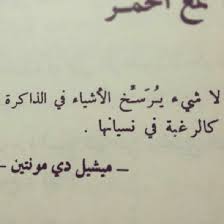 مع الخمر
لا شيء يُرَسِّخ الأشياء في الذاكرة
كالرغبة في نسيانها .
ــ ميشيل دي مونتين ــ